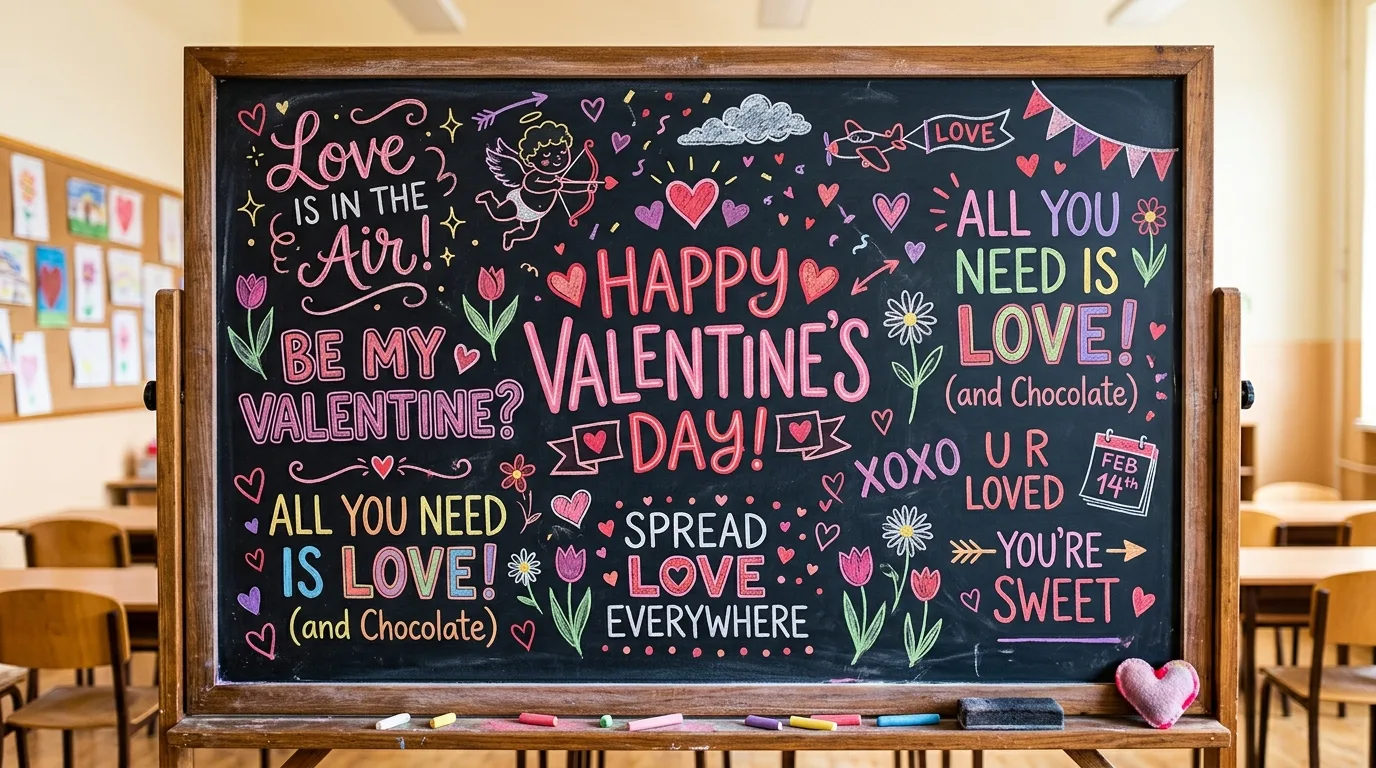 Love
IS IN THE
Air!
BE MY
VALENTINE?
ALL YOU NEED
IS LOVE!
(and Chocolate)
HAPPY
VALENTINE'S
DAY!
SPREAD
LOVE
EVERYWHERE
LOVE
ALL YOU
NEED IS
LOVE!
(and Chocolate)
XOXO
U R
LOVED
FEB
14th
YOU'RE
SWEET